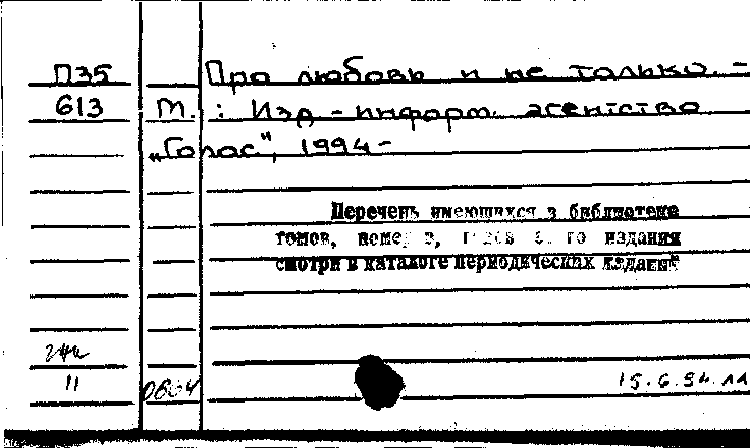 П35 Про любовь и не только. -
613 М. : Изд-информ. агентство
„Голос", 1994-
Перечень имеющихся в библиотеке
томов, номеров, годов его издания
смотри в каталоге периодических изданий
11
15.6.94